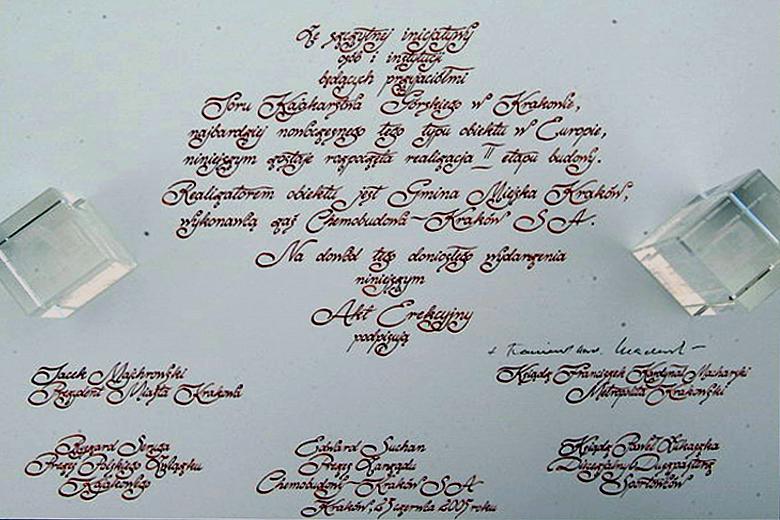 Ze szczytnej inicjatywy
osób i instytucji
będących przyjaciółmi
Toru Kajakarstwa Górskiego w Krakowie,
najbardziej nowoczesnego tego typu obiektu w Europie,
niniejszym zostaje rozpoczęta realizacja II etapu budowy.
Realizatorem obiektu jest Gmina Miejska Kraków,
wykonawcą zaś Chemobudowa-Kraków S.A.
Na dowód tego doniosłego wydarzenia
niniejszym
Akt Erekcyjny
podpisują
Jacek Majchrowski
Prezydent Miasta Krakowa
Ksiądz Franciszek Kardynał Macharski
Metropolita Krakowski
Ryszard Seruga
Prezes Polskiego Związku
Kajakowego
Edward Suchan
Prezes Zarządu
Chemobudowa-Kraków S.A.
Kraków, 25 czerwca 2005 roku
Ksiądz Paweł Łukaszka
Diecezjalny Duszpasterz
Sportowców